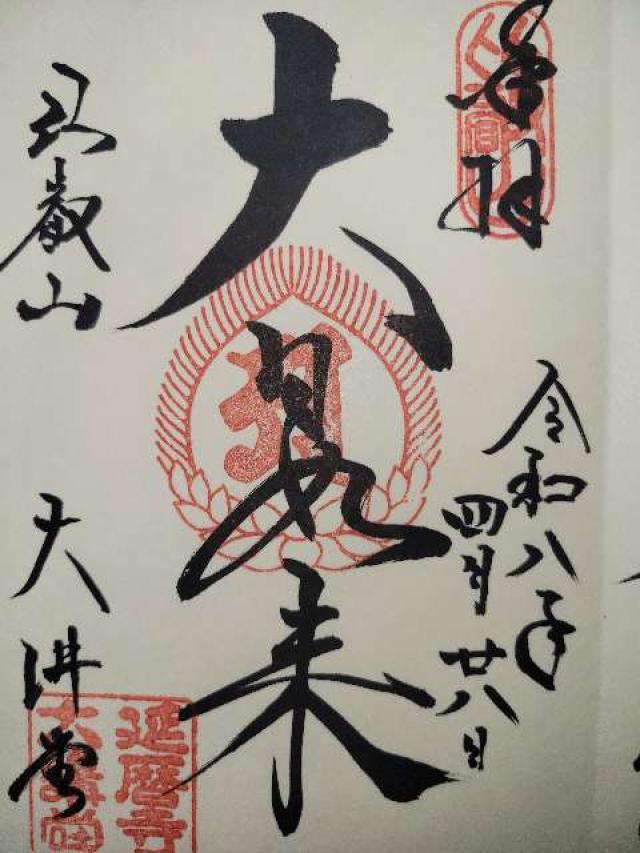 奉拝
令和八年
四月廿八日
大日如来
比叡山
大講堂
延暦寺
大講堂